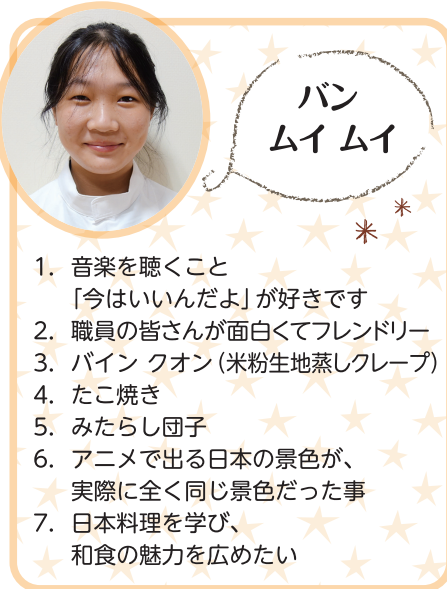 バン
ムイ ムイ
1. 音楽を聴くこと
「今はいいんだよ」が好きです
2. 職員の皆さんが面白くてフレンドリー
3. バイン クオン（米粉生地蒸しクレープ）
4. たこ焼き
5. みたらし団子
6. アニメで出る日本の景色が、
実際に全く同じ景色だった事
7. 日本料理を学び、
和食の魅力を広めたい